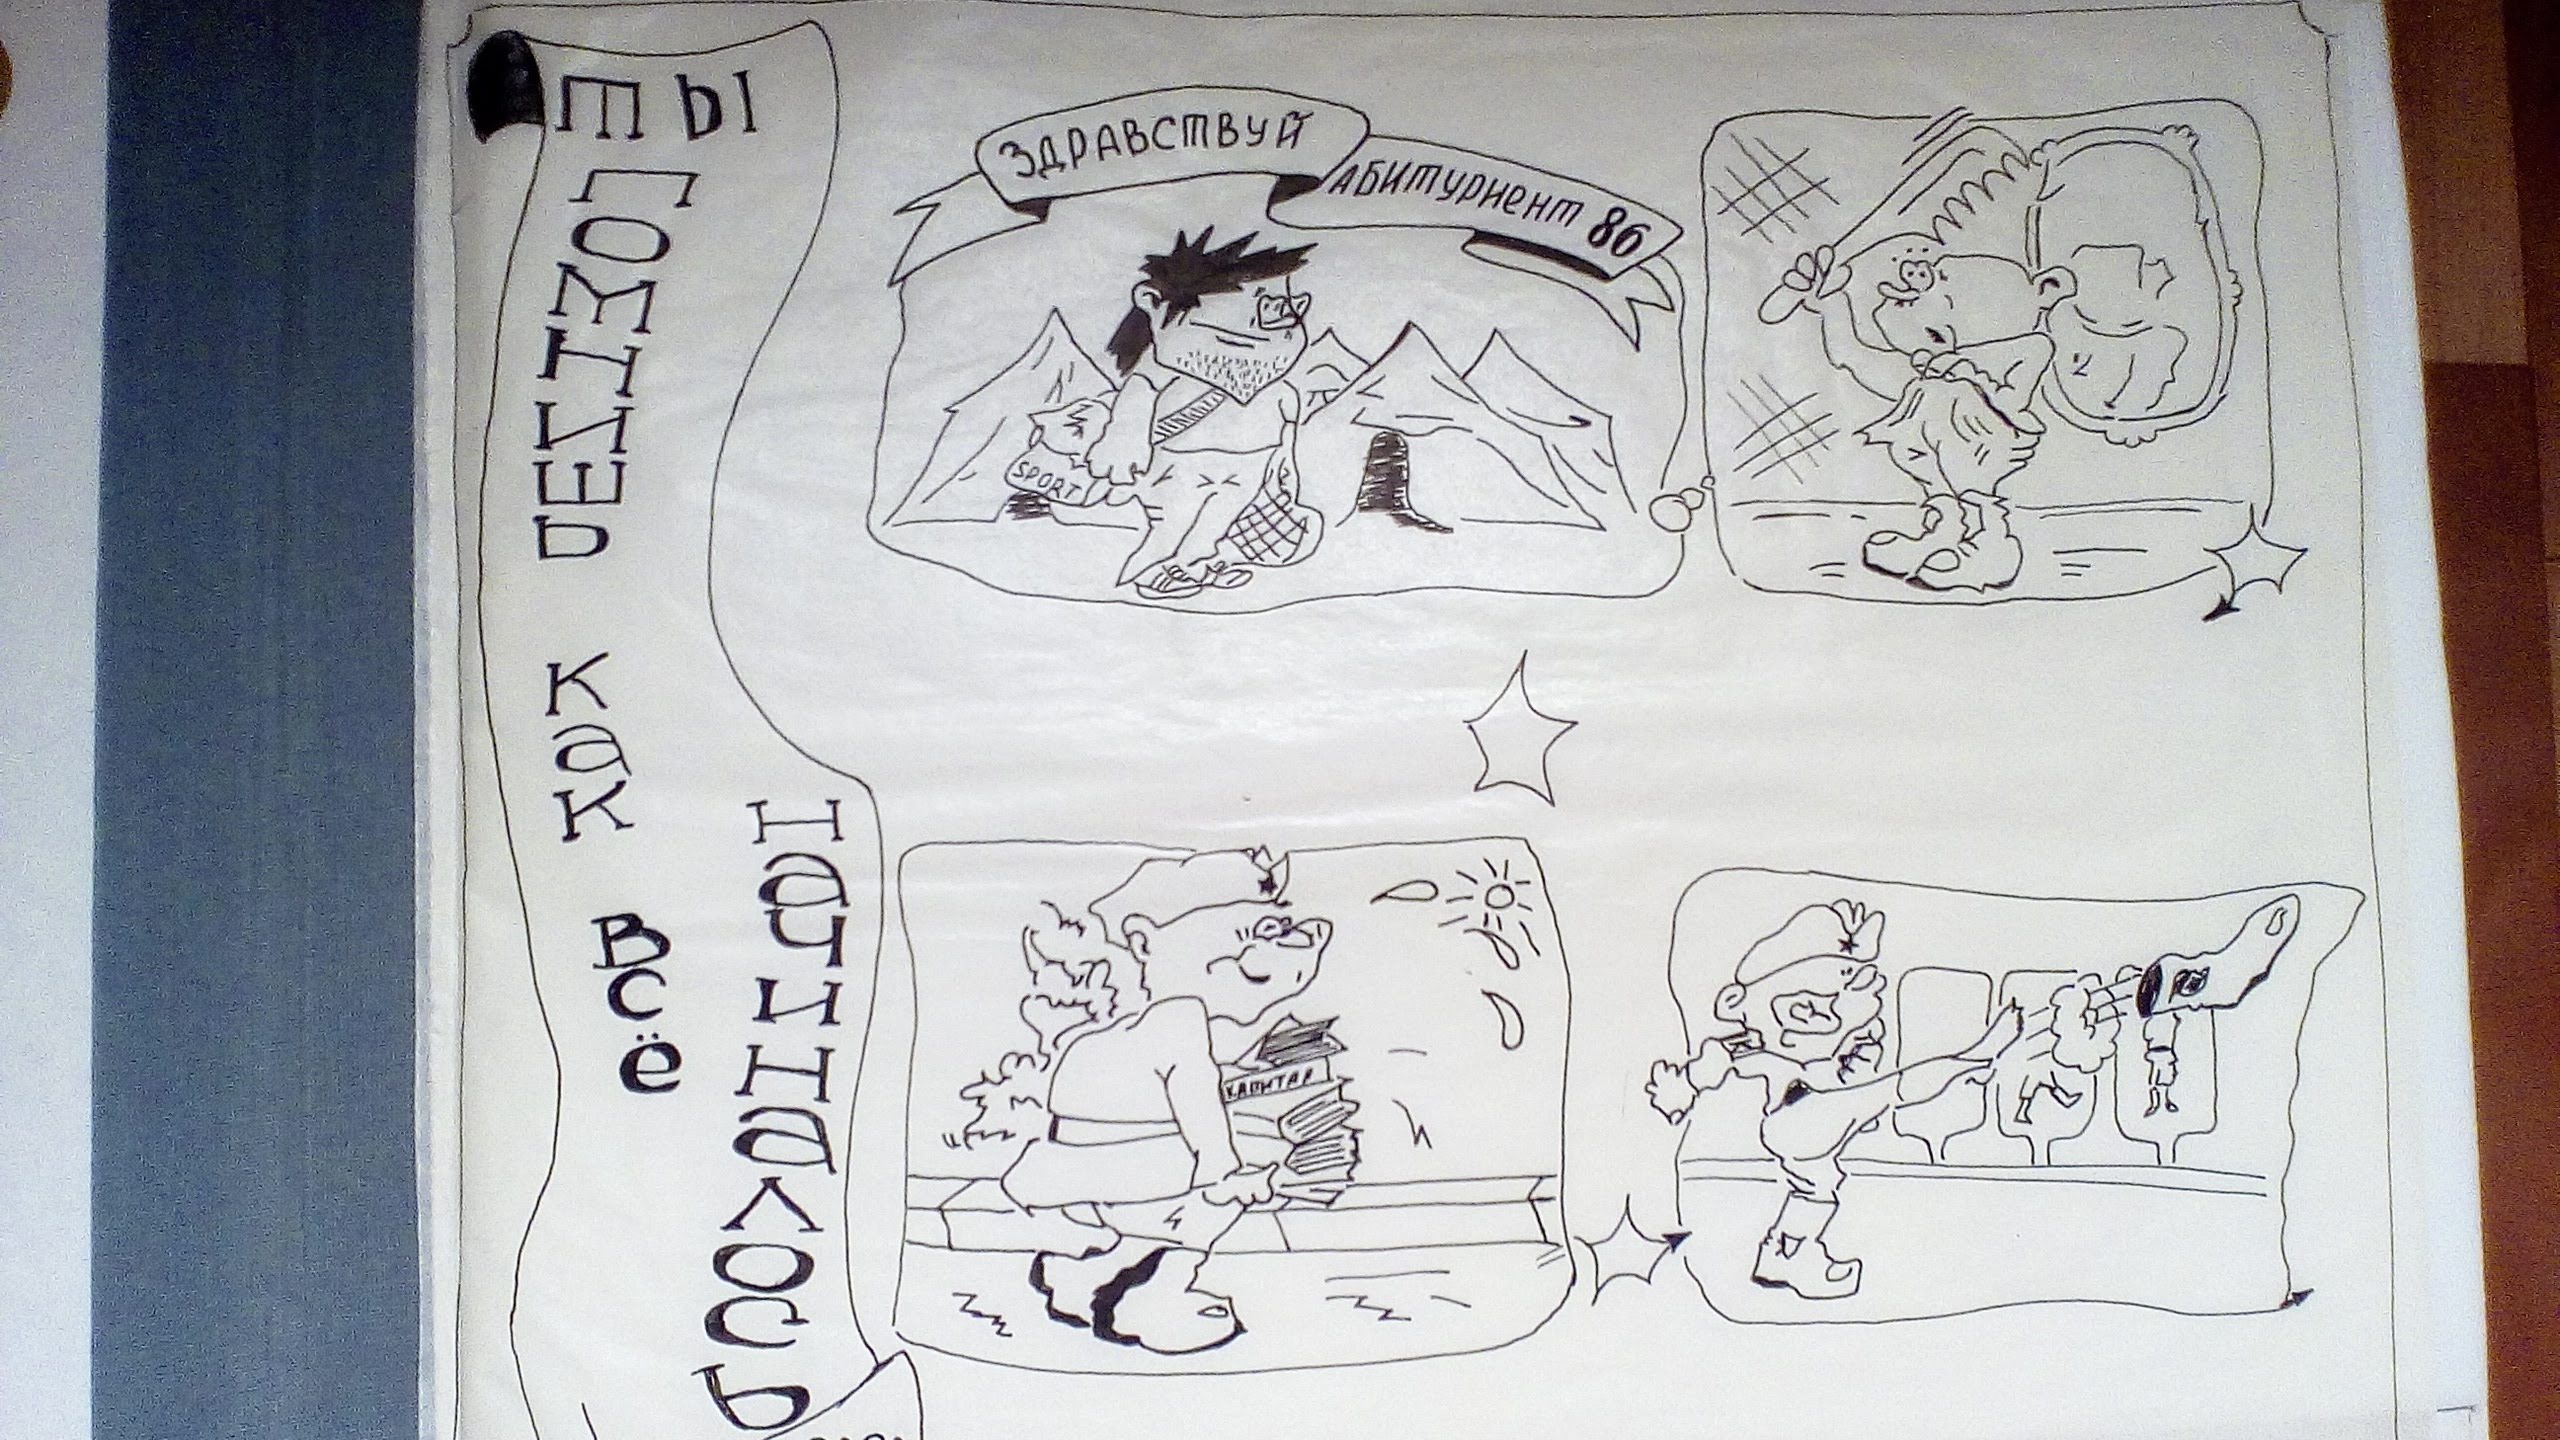 ты
помнишь
как
всё
начиналось
ЗДРАВСТВУЙ
АБИТУРИЕНТ 86
SPORT
КАПИТАЛ